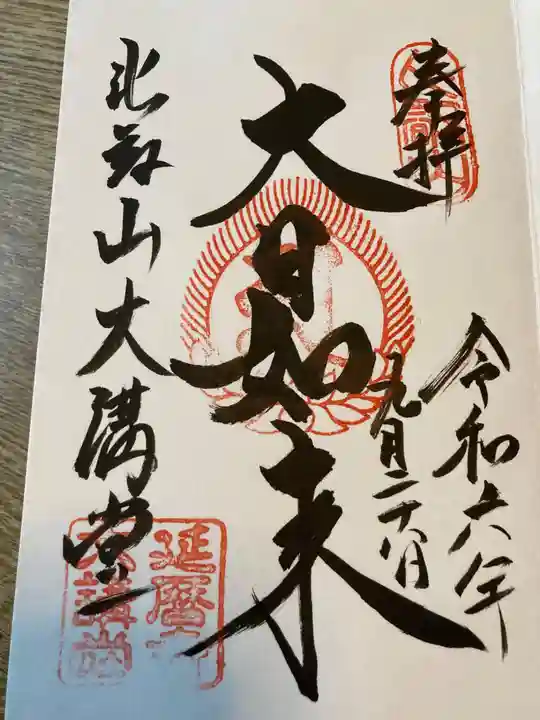 奉拝
令和六年
九月二十八日
大日如来
比叡山大講堂
延暦寺
大講堂